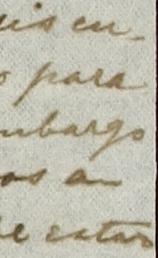 uis en-
o para
mbargo
os a
de estar